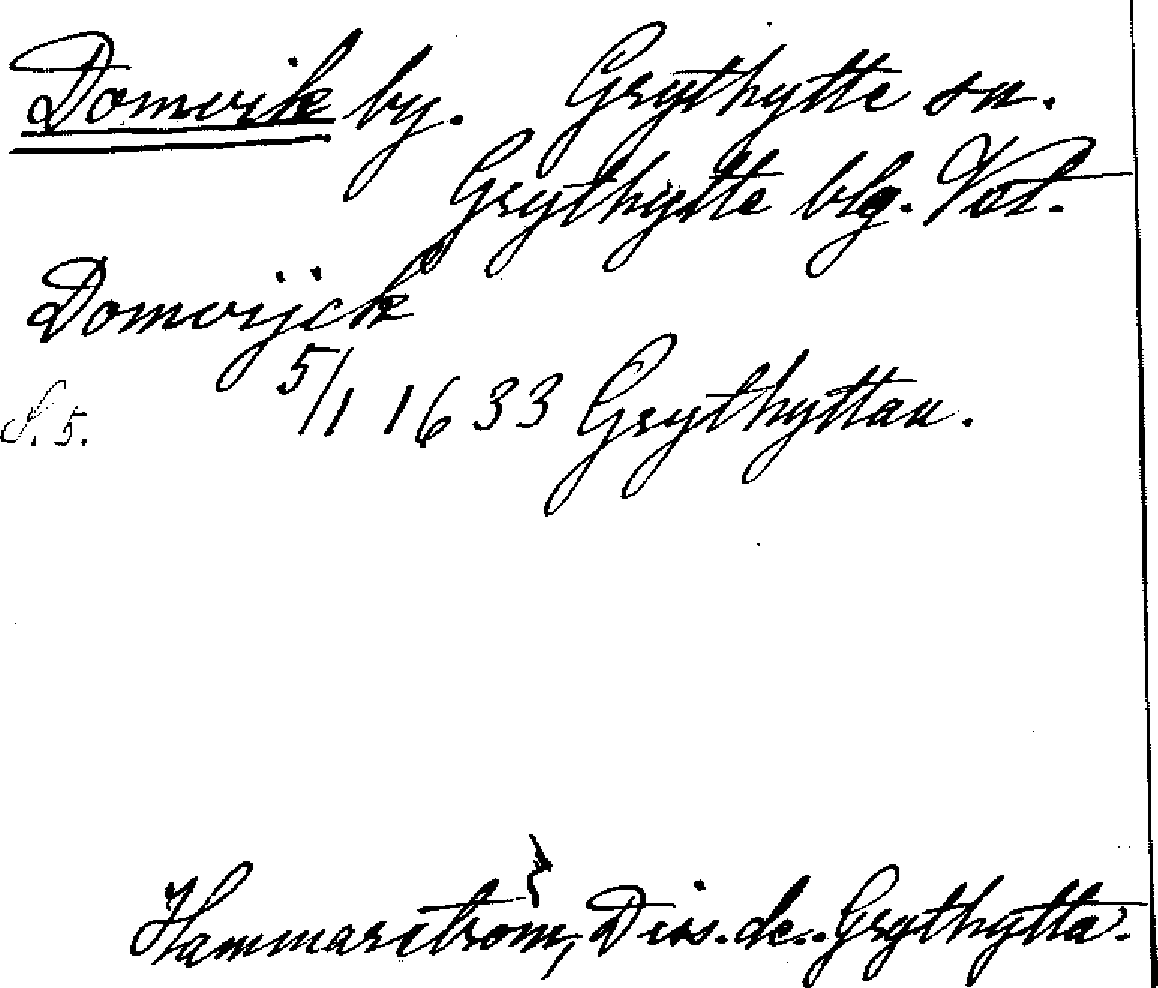 Domvik by. Grythytte sn.
Grythytte blg. Vstl.
Domvijck
S. 5. 5/1 1633 Grythyttan.
Hammarström, Diss. de. Grythytta.